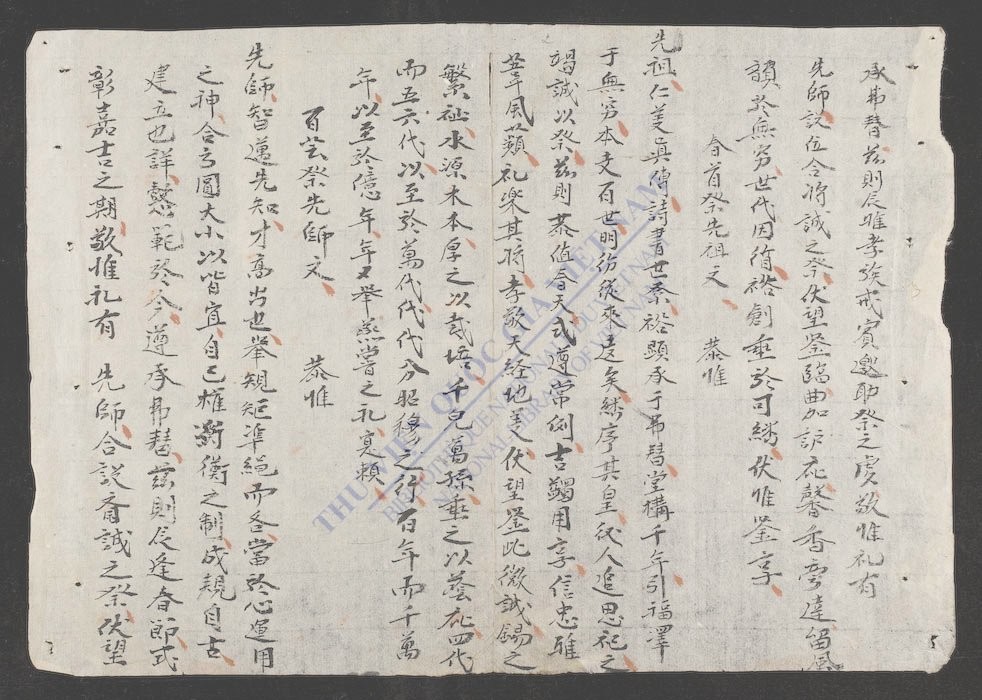 承弗替茲則辰惟孝族戒賓邀助祭之虔敬惟礼有
先師設位令将誠之祭伏望鉴臨曲加訢庇馨香旁達留風
韻於無窮世代因循裕創垂於可繼伏惟鉴享
春首祭先祖文　恭惟
先祖仁美真傳詩書世業裕顕承于弗替堂構千年引福澤
于無穷本支百世明份從來遠矣繼序其皇後人追思祀之
竭誠以祭茲則恭值春天式遵常例吉蠲用享信忠雖
風蘋礼樂其將孝敬天經地美伏望鉴此微誠錫之
繁祉水源木本厚之以栽培千兒萬孫垂之以蔭庇四代
而五六代以至於萬代代代分昭穆之行百年而千萬
年以至於億年年年又举烝嘗之礼寔頼
百芸祭先師文　恭惟
先師智邁先知才高出世举規矩準繩而各當於心運用
之神合方圓大小以皆宜自己權衡之制成規自古
建立也詳懿範於今遵承弗替茲則辰逢春節式
彰嘉吉之期敬惟礼有　先師合設齊誠之祭伏望
THU VIEN QUOC GIA VIET NAM
BIBLIOTHEQUE NATIONALE DU VIETNAM
NATIONAL LIBRARY OF VIETNAM